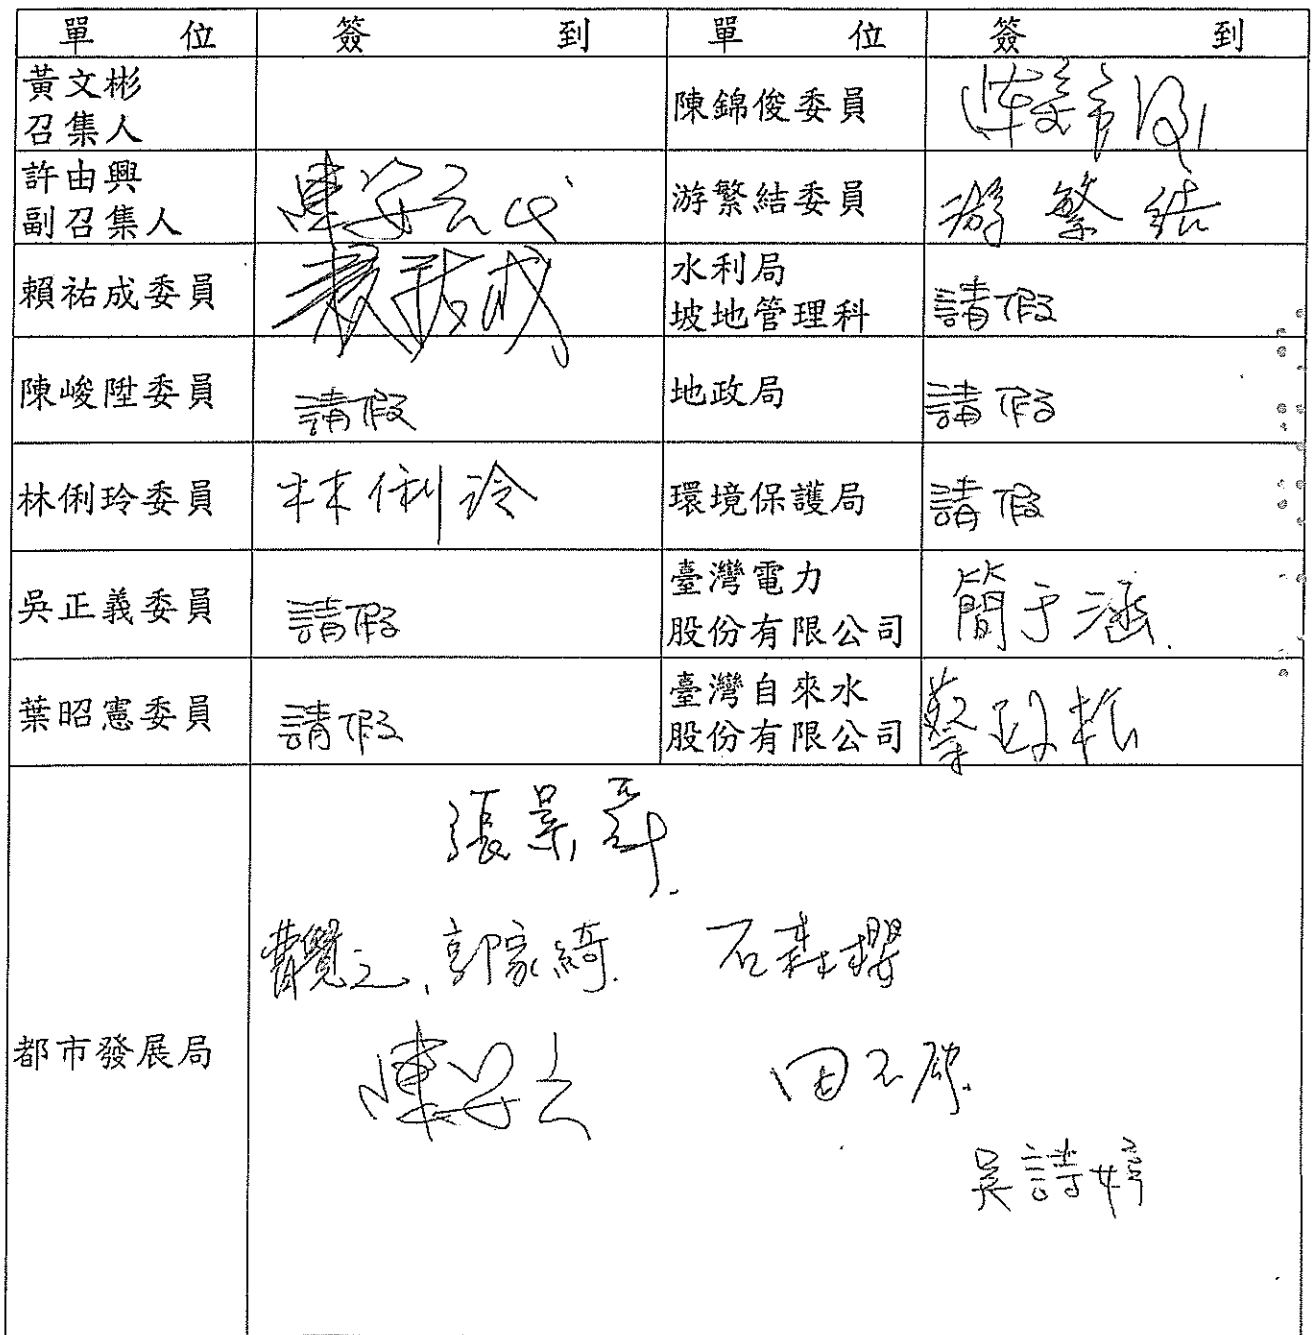 單位 簽到 單位 簽到
黃文彬
召集人
陳錦俊委員
許由興
副召集人
陳安云代
游繁結委員 游繁結
賴祐成委員 賴祐成
水利局
坡地管理科
請假
陳峻陞委員 請假 地政局 請假
林俐玲委員 林俐玲 環境保護局 請假
吳正義委員 請假
臺灣電力
股份有限公司
簡于涵
葉昭憲委員 請假
臺灣自來水
股份有限公司
都市發展局
費覺之、郭家綺
陳安云
吳詩婷